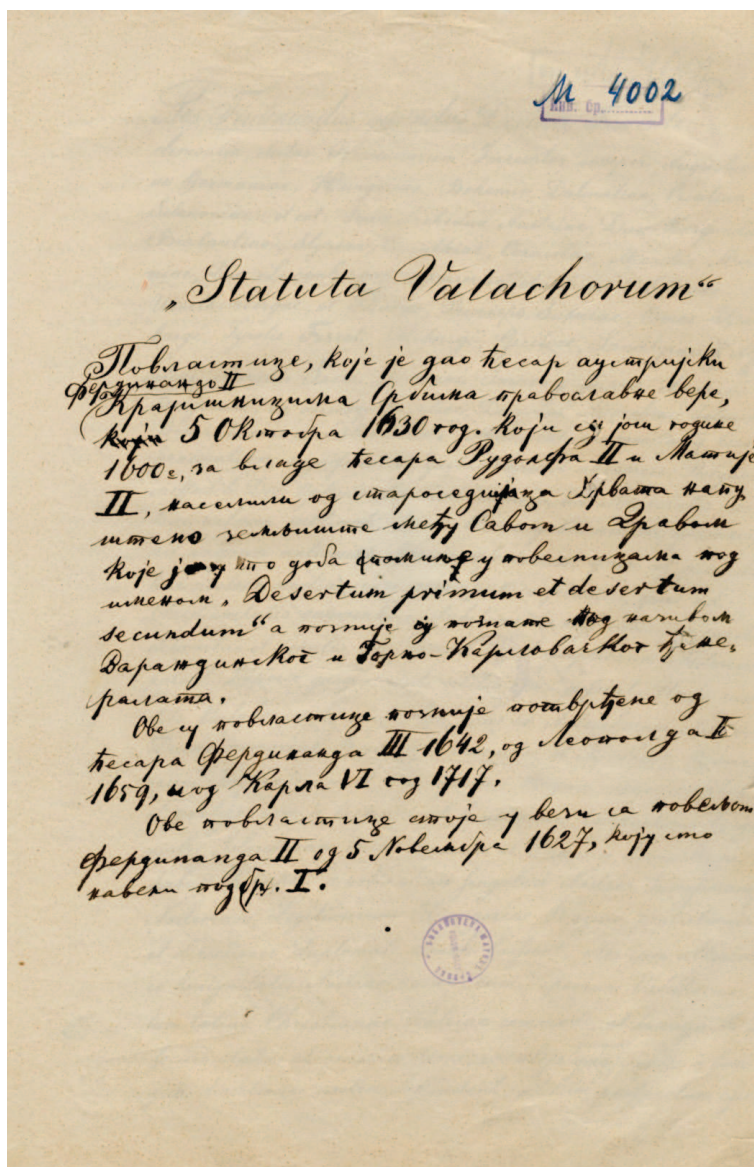 М 4002
Инв. бр.
„Statuta Valachorum“
Повластице, које је дао ћесар аустријски
Фердинандо II
Крајишницима Србима православне вере,
5 Октобра 1630 год. који су још године
1600е, за владе ћесара Рудолфа II и Матије
II, населили од староседиоца Хрвата напу
штено земљиште међу Савом и Дравом
које је у то доба у повесницама под
именом „Desertum primum et desertum
secundum“ а позније су познате под називом
Вараждинског и Горно-Карловачког Ђене-
ралата.
Ове су повластице позније потврђене од
ћесара Фердинанда III 1642, од Леополда I
1659, и од Карла VI год 1717.
Ове повластице стоје у вези са повељом
Фердинанда II од 5 Новембра 1627, коју смо
навели под бр. I.